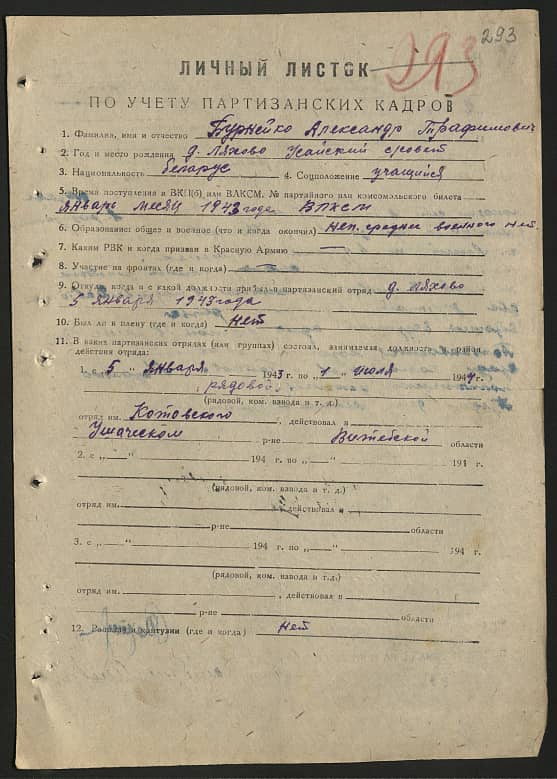 293
293
ЛИЧНЫЙ ЛИСТОК
ПО УЧЕТУ ПАРТИЗАНСКИХ КАДРОВ
1. Фамилия, имя и отчество Бурнейко Александр Трафимович
2. Год и место рождения д. Ляхово Усайский с/совет
3. Национальность беларус 4. Соцположение учащийся
5. Время поступления в ВКП(б) или ВЛКСМ, № партийного или комсомольского билета
январь месяц 1943 года ВЛКСМ
6. Образование: общее и военное (что и когда окончил) Неп. среднее военного нет.
7. Каким РВК и когда призван в Красную Армию —
8. Участие на фронтах (где и когда) —
9. Откуда, когда и с какой должности прибыл в партизанский отряд д. Ляхово
5 января 1943 года
10. Был ли в плену (где и когда) Нет
11. В каких партизанских отрядах (или группах) состоял, занимаемая должность, район
действия отряда:
1. 5 " января 1943 г. по „ 1 " июля 1944 г.
рядовой
(рядовой, ком. взвода и т. д.)
отряд им. Котовского, действовал в
Ушаческом р-не Витебской области
2. с „—" 194 г. по „—" 194 г.
(рядовой, ком. взвода и т. д.)
отряд им. действовал в
р-не области
3. с „—" 194 г. по „—" 194 г.
(рядовой, ком. взвода и т.д.)
отряд им. , действовал в
р-не области
12. Ранения и контузии (где и когда) Нет